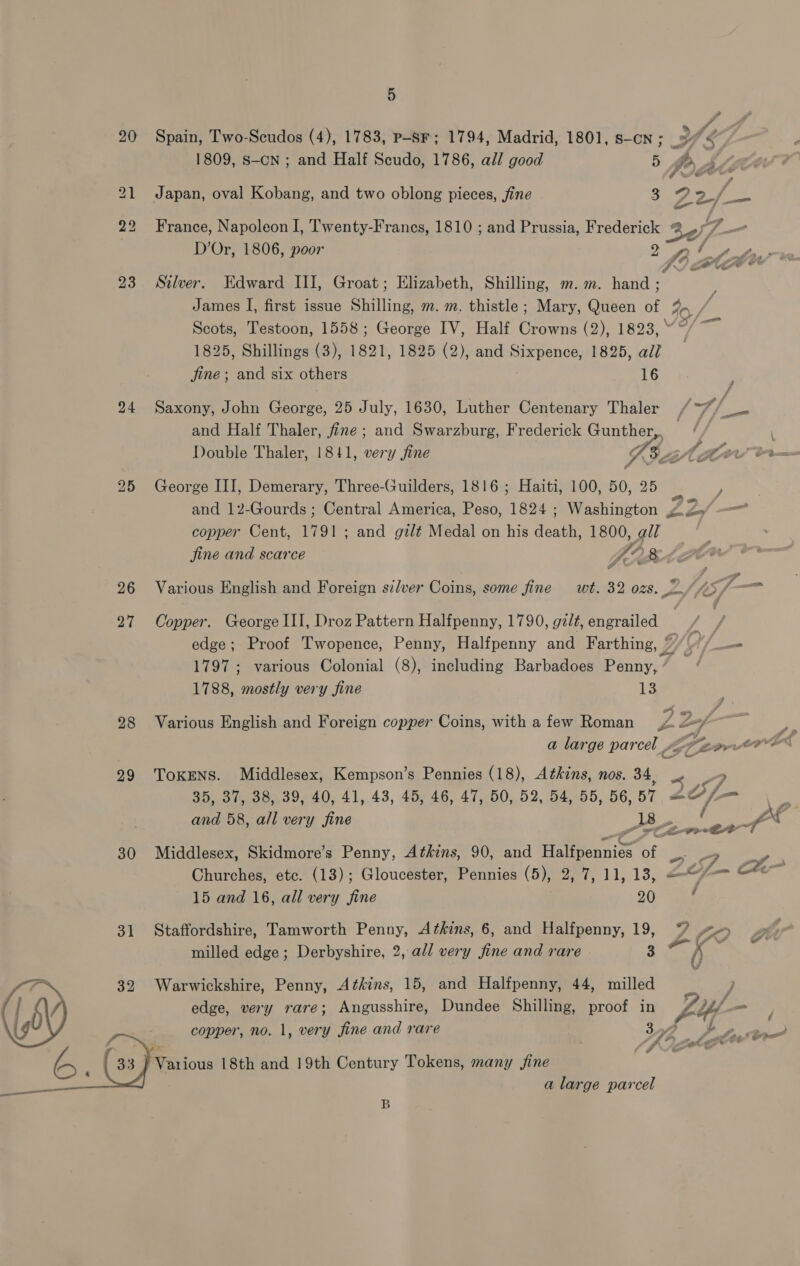 5
20 Spain, Two-Scudos (4), 1783, P–SF; 1794, Madrid, 1801, S–CN;
1809, S–CN; and Half Scudo, 1786, all good 5
21 Japan, oval Kobang, and two oblong pieces, fine 3 22/–
22 France, Napoleon I, Twenty-Francs, 1810; and Prussia, Frederick
D'Or, 1806, poor 2
23 Silver. Edward III, Groat; Elizabeth, Shilling, m. m. hand;
James I, first issue Shilling, m. m. thistle; Mary, Queen of
Scots, Testoon, 1558; George IV, Half Crowns (2), 1823,
1825, Shillings (3), 1821, 1825 (2), and Sixpence, 1825, all
fine; and six others 16
24 Saxony, John George, 25 July, 1630, Luther Centenary Thaler
and Half Thaler, fine; and Swarzburg, Frederick Gunther,
Double Thaler, 1841, very fine 3
25 George III, Demerary, Three-Guilders, 1816; Haiti, 100, 50, 25
and 12-Gourds; Central America, Peso, 1824; Washington
copper Cent, 1791; and gilt Medal on his death, 1800, all
fine and scarce 8
26 Various English and Foreign silver Coins, some fine wt. 32 ozs.
27 Copper. George III, Droz Pattern Halfpenny, 1790, gilt, engrailed
edge; Proof Twopence, Penny, Halfpenny and Farthing,
1797; various Colonial (8), including Barbadoes Penny,
1788, mostly very fine 13
28 Various English and Foreign copper Coins, with a few Roman
a large parcel
29 TOKENS. Middlesex, Kempson's Pennies (18), Atkins, nos. 34,
35, 37, 38, 39, 40, 41, 43, 45, 46, 47, 50, 52, 54, 55, 56, 57
and 58, all very fine 18
30 Middlesex, Skidmore's Penny, Atkins, 90, and Halfpennies of
Churches, etc. (13); Gloucester, Pennies (5), 2, 7, 11, 13,
15 and 16, all very fine 20
31 Staffordshire, Tamworth Penny, Atkins, 6, and Halfpenny, 19,
milled edge; Derbyshire, 2, all very fine and rare 3
32 Warwickshire, Penny, Atkins, 15, and Halfpenny, 44, milled
edge, very rare; Angusshire, Dundee Shilling, proof in
copper, no. 1, very fine and rare 3
33 Various 18th and 19th Century Tokens, many fine
a large parcel
B